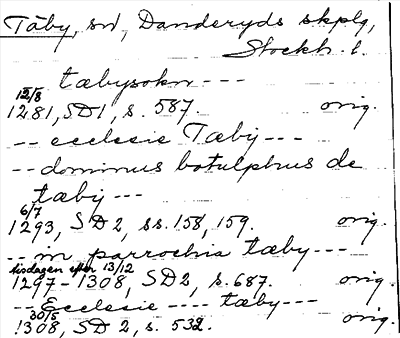 Täby, sn, Danderyds skplg,
Stockh. l.
tæbysokn ---
12/8
1281, SD1, s. 587. orig.
-- ecclesie Tæby ---
-- dominus botulphus de
tæby ---
6/7
1293, SD2, ss. 158, 159. orig.
-- in parrochia tæby ---
tisdagen efter 13/12
1297-1308, SD2, s. 687. orig.
-- Ecclesie ---- tæby ---
30/5
1308, SD 2, s. 532. orig.